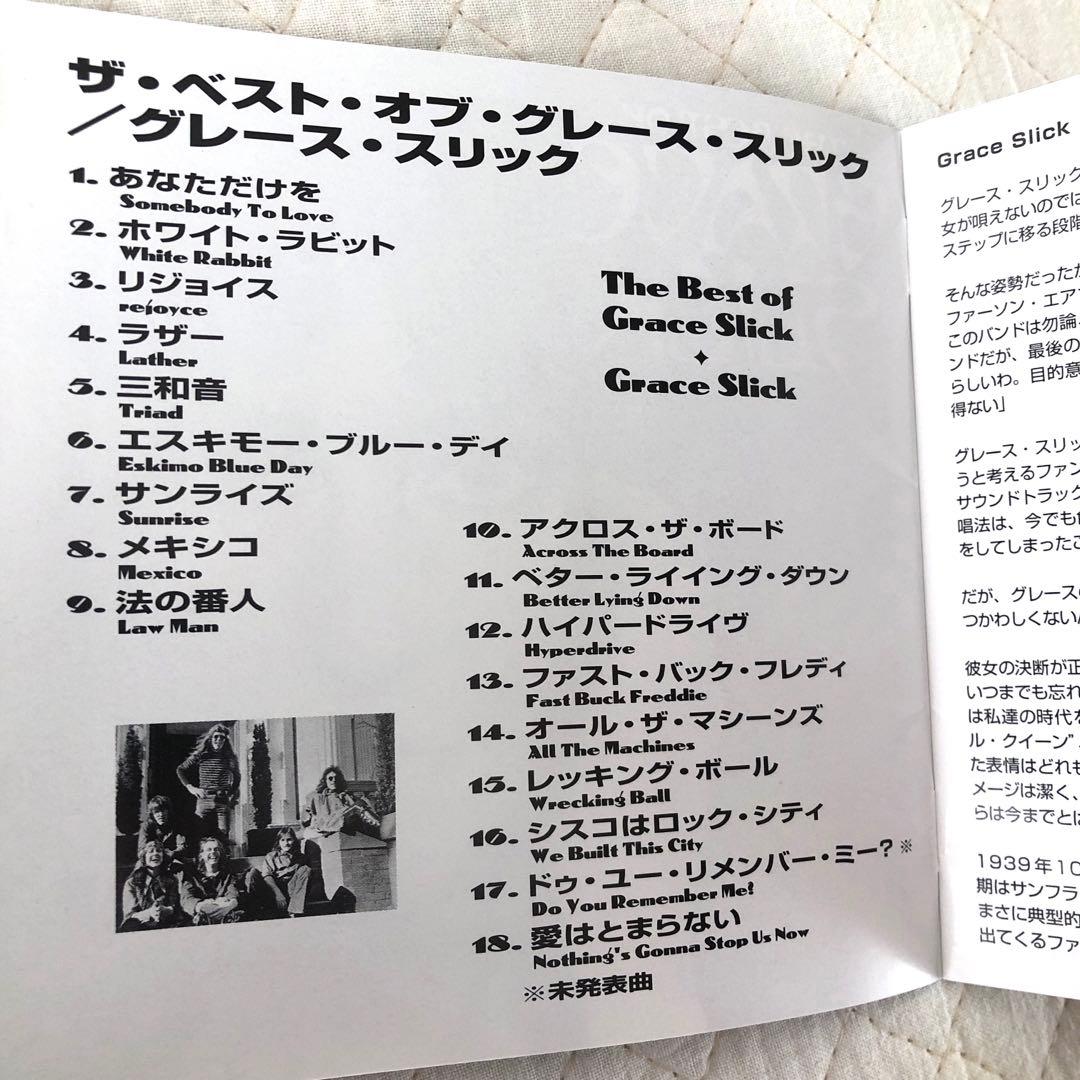 ザ・ベスト・オブ・グレース・スリック
／グレース・スリック
1. あなただけを
Somebody To Love
2. ホワイト・ラビット
White Rabbit
3. リジョイス
rejoyce
4. ラザー
Lather
5. 三和音
Triad
6. エスキモー・ブルー・デイ
Eskimo Blue Day
7. サンライズ
Sunrise
8. メキシコ
Mexico
9. 法の番人
Law Man
The Best of
Grace Slick
✦
Grace Slick
10. アクロス・ザ・ボード
Across The Board
11. ベター・ライイング・ダウン
Better Lying Down
12. ハイパードライヴ
Hyperdrive
13. ファスト・バック・フレディ
Fast Buck Freddie
14. オール・ザ・マシーンズ
All The Machines
15. レッキング・ボール
Wrecking Ball
16. シスコはロック・シティ
We Built This City
17. ドゥ・ユー・リメンバー・ミー？※
Do You Remember Me?
18. 愛はとまらない
Nothing's Gonna Stop Us Now
※未発表曲
Grace Slick
グレース・スリック
女が唄えないのでは
ステップに移る段階
そんな姿勢だったか
ファーソン・エア
このバンドは勿論、
ンドだが、最後の
らしいわ。目的意
得ない」
グレース・スリッ
うと考えるファン
サウンドトラック
唱法は、今でも
をしてしまったこ
だが、グレースの
つかわしくない
彼女の決断が正
いつまでも忘れ
は私達の時代
ル・クイーン”
た表情はどれも
メージは潔く、
らは今までとは
1939年10
期はサンフラ
まさに典型的
出てくるファ